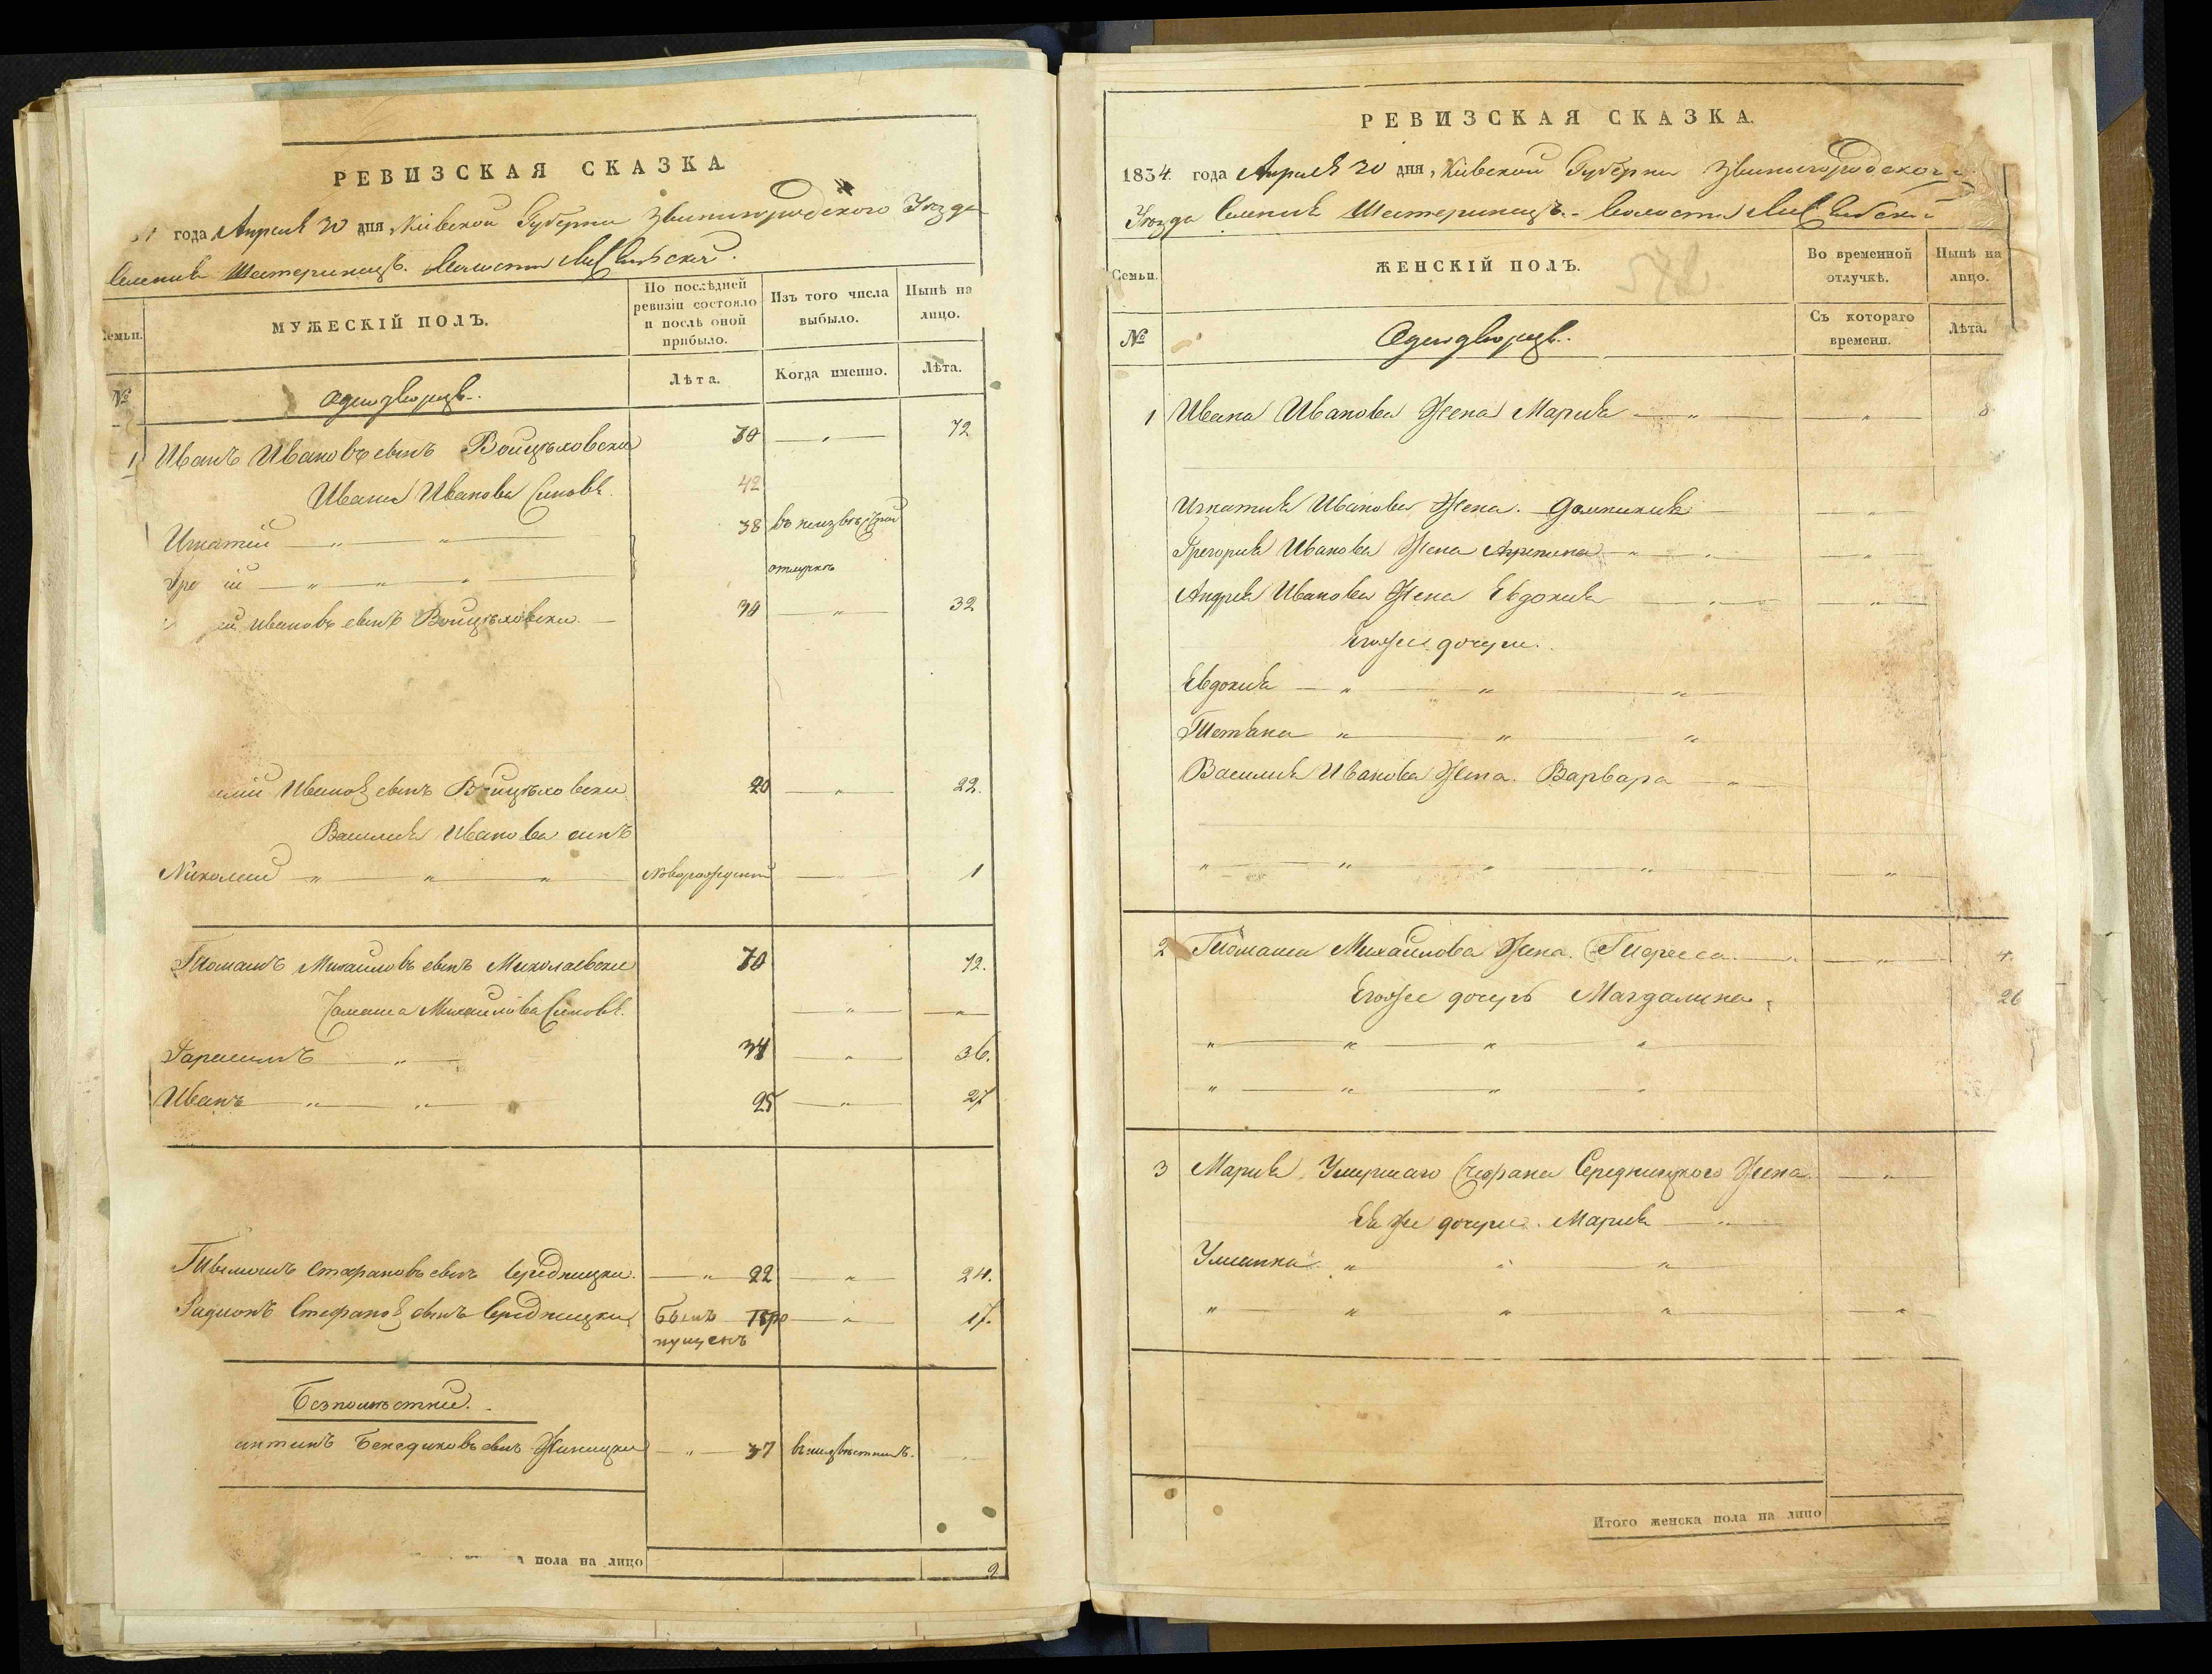 РЕВИЗСКАЯ СКАЗКА
года Апреля 30 дня, Кіевской Губерніи Звинигородского Уѣзда
Селенія Шестеринецъ.
Семьи.
МУЖЕСКІЙ ПОЛЪ.
По послѣдней ревизіи состояло и послѣ оной прибыло.
Изъ того числа выбыло.
Нынѣ на лицо.
№
Однодворцы.
Лѣта.
Когда именно.
Лѣта.
1 Иванъ Ивановъ сынъ Войцѣховски 70 — „ — 72
Ивана Иванова Сыновья 42
Игнатій — „ — „ — 38 въ неизвѣстной
Гре ій — „ — „ — „ отлучкѣ
ей Ивановъ сынъ Войцѣховски — 30 — „ — 32
илій Ивановъ сынъ Войцѣховски 20 — „ — 22.
Василія Иванова сынъ
Николай — „ — „ — „ — Новорожденный — „ — 1
Томашъ Михайловъ сынъ Миколаевски 70 72.
Томаша Михайлова Сыновья — „ — — „ —
Гарасимъ — „ — 34 — „ — 36.
Иванъ — „ — „ — 25 — „ — 27
Стефановъ сынъ Середницки. — „ — 22 — „ — 24.
Радионъ Стефановъ сынъ Середницки былъ про — „ — 17.
пущенъ
Безпоместніи.
сынъ — „ — 37 въ неизвѣстной.
пола на лицо 9
РЕВИЗСКАЯ СКАЗКА.
1834. года Апреля 30 дня, Кіевской Губерніи Звинигородского
Уѣзда Селенія Шестеринецъ.
Семьи.
ЖЕНСКІЙ ПОЛЪ.
Во временной отлучкѣ.
Нынѣ на лицо.
№
Однодворцы.
Съ котораго времени.
Лѣта.
1 Ивана Иванова Жена Марія — „ — — „ —
Игнатія Иванова Жена. Доминикія — — „
Грегорія Иванова Жена Агрепина — „ — „ — — „ —
Андрея Иванова Жена Евдокія — „ — — „ —
Егоже дочери.
Евдокія — „ — „ — „ —
Тетяна „ — „ — „
Василия Иванова Жена. Варвара — „ —
„ — „ — „ — „ — „
2 Томаша Михайлова Жена. Тереса. — „ — „ —
Егоже дочерь Магдалина. 26
„ — „ — „ — „
„ — „ — „ — „
3 Марія Умершаго Стефана Середницкого Жена. — „ —
Ея же дочери. Марія — „ —
Улианна. „ „ „
„ „ „ „ „
Итого женска пола на лицо